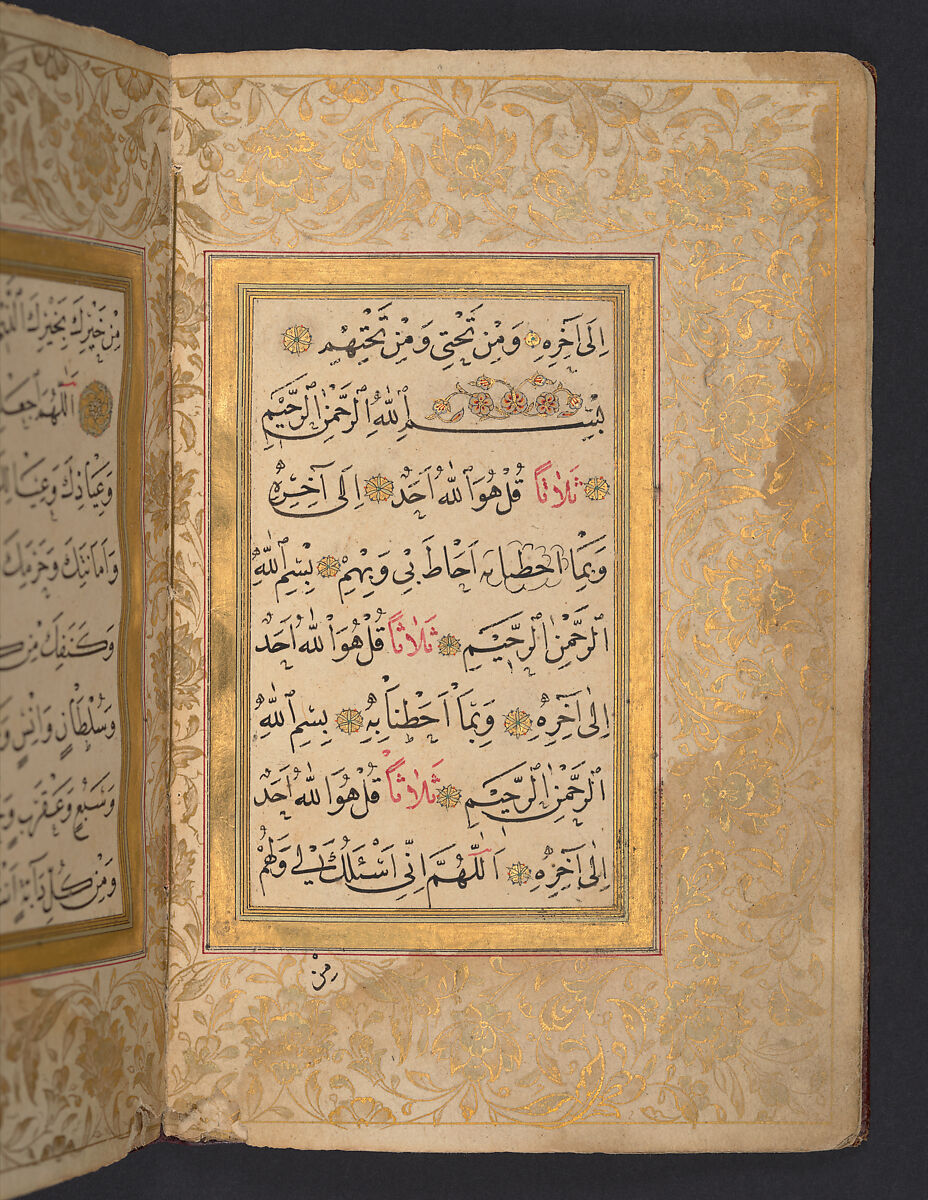 اِلٰى آخِرِهٖ وَمِنْ تَحْتِى وَمِنْ تَحْتِهِمْ
بِسْمِ اللّٰهِ الرَّحْمٰنِ الرَّحِيْمِ
ثَلَاثًا قُلْ هُوَ اللّٰهُ اَحَدٌ اِلٰى آخِرِهٖ
وَبِمَا احطنابه اَحَاطَ بِى وَبِهِمْ بِسْمِ اللّٰهِ
الرَّحْمٰنِ الرَّحِيْمِ ثَلَاثًا قُلْ هُوَ اللّٰهُ اَحَدٌ
اِلٰى آخِرِهٖ وَبِمَآ اَحَطْنَا بِهٖ بِسْمِ اللّٰهِ
الرَّحْمٰنِ الرَّحِيْمِ ثَلَاثًا قُلْ هُوَ اللّٰهُ اَحَدٌ
اِلٰى آخِرِهٖ اَللّٰهُمَّ اِنِّى اَسْئَلُكَ لِى وَلَهُمْ
مِنْ
مِنْ خَيْرِكَ بِخَيْرِكَ
اَللّٰهُمَّ
وَعِيَاذِكَ
وَاَمَانَتِكَ
وَكَنَفِكَ مِنْ
وَسُلْطَانٍ وَاِنْسٍ
وَسَبُعٍ وَعَقْرَبٍ
وَمِنْ كُلِّ دَآبَّةٍ